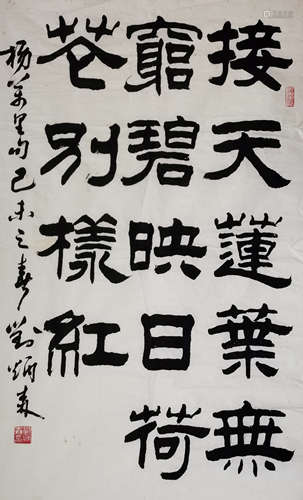 接天蓮葉無
窮碧映日荷
花别樣紅
楊萬里句己未之春劉炳森